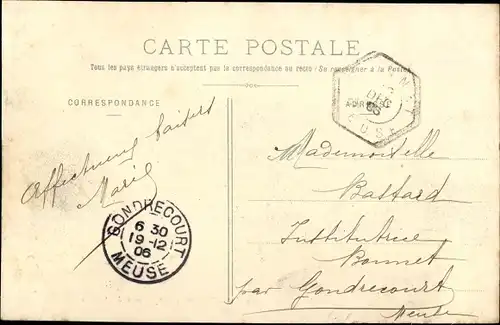 CARTE POSTALE
Tous les pays étrangers n'acceptent pas la correspondance au recto (Se renseigner à la Poste)
CORRESPONDANCE
Affectueux baisers
Marie
GONDRECOURT
6 30
19-12
06
MEUSE
DEC
06
Mademoiselle
Bastard
Institutrice
Bonnet
par Gondrecourt
Meuse